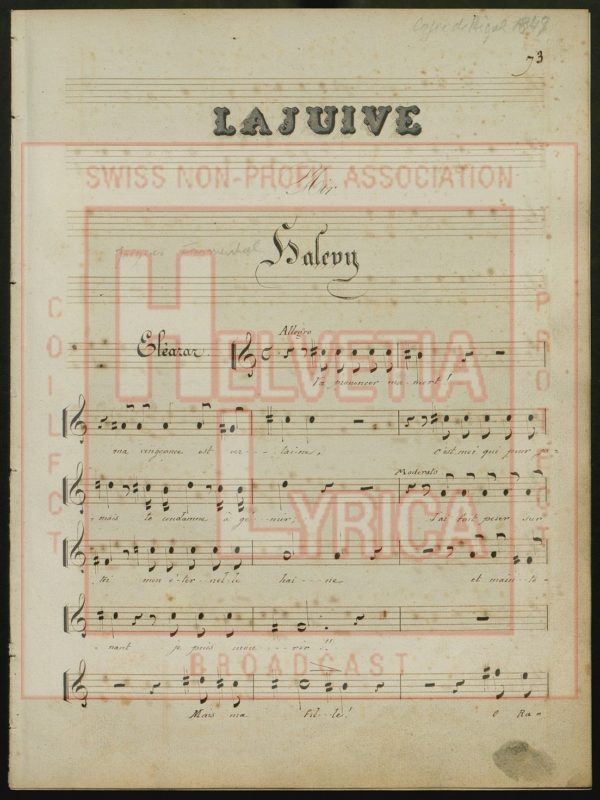 1848
73
LA JUIVE
SWISS NON-PROFIT ASSOCIATION
Air
Halevy
HELVETIA
LYRICA
BROADCAST
Eléazar.
Allegro
Va prononcer ma mort!
ma vengeance est cer - taine,
c'est moi qui pour ja -
Moderato
- mais te condamne à gé - mir,
J'ai fait peser sur
toi mon é - ter - nel - le hai - ne
et main - te -
- nant je puis mou - rir!!
Mais ma fil - le!
O Ra -